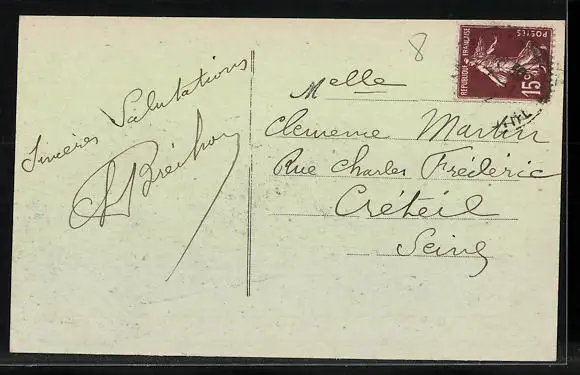 Sincères Salutations
8
Melle
Clemence Martin
Rue Charles Frédéric
Créteil
Seine
POSTES
REPUBLIQUE FRANÇAISE
15c